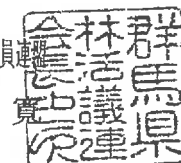 群馬県
林活議連
会長之印
員
寛